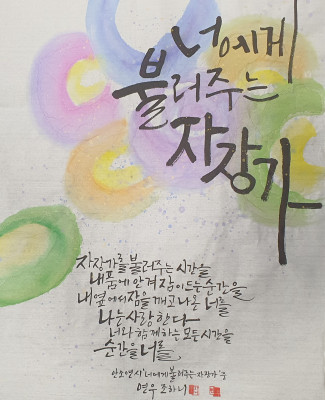 너에게
불러주는
자장가
자장가를 불러주는 시간을
내 품에 안겨 잠이 드는 순간을
내 옆에서 잠을 깨고 나온 너를
나는 사랑한다
너와 함께하는 모든 시간을
순간을 너를
안소연 시 '너에게 불러주는 자장가' 중
연우 조하니